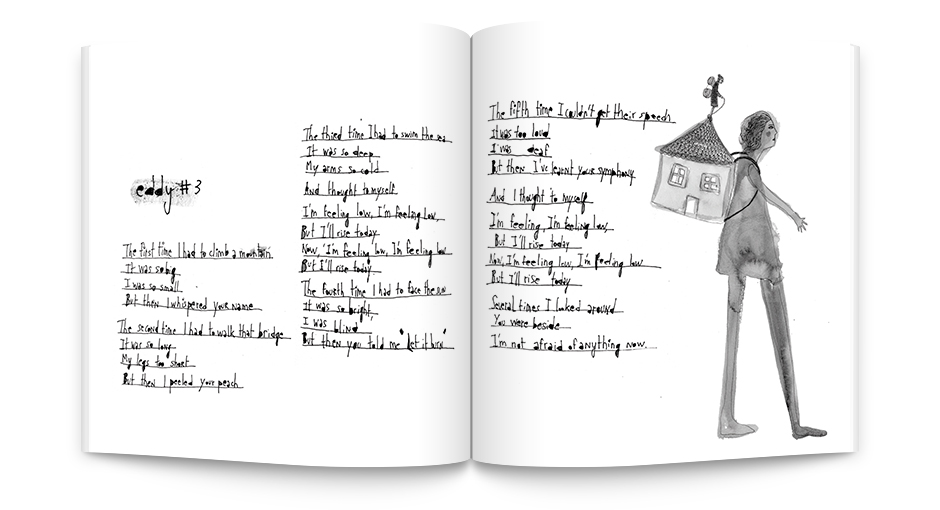 eddy #3
The first time I had to climb a mountain
It was so big
I was so small
But then I whispered your name
The second time I had to walk that bridge
It was so long
My legs too short
But then I peeled your peach
The third time I had to swim the sea
It was so deep
My arms so cold
And thought to myself
I'm feeling low, I'm feeling low,
But I'll rise today
Now, I'm feeling low, I'm feeling low
But I'll rise today
The fourth time I had to face the sun
It was so bright,
I was blind
But then you told me "Let it burn"
The fifth time I couldn't get their speech
It was too loud
I was deaf
But then I've learnt your symphony
And I thought to myself
I'm feeling, I'm feeling low,
But I'll rise today
Now, I'm feeling low, I'm feeling low
But I'll rise today
Several times I looked around
You were beside
I'm not afraid of anything now.